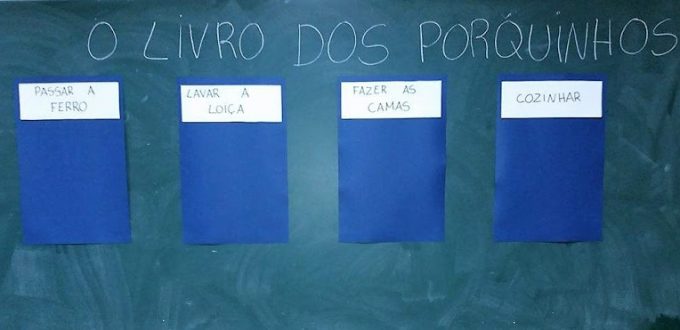 O LIVRO DOS PORQUINHOS
PASSAR A
FERRO
LAVAR A
LOIÇA
FAZER AS
CAMAS
COZINHAR